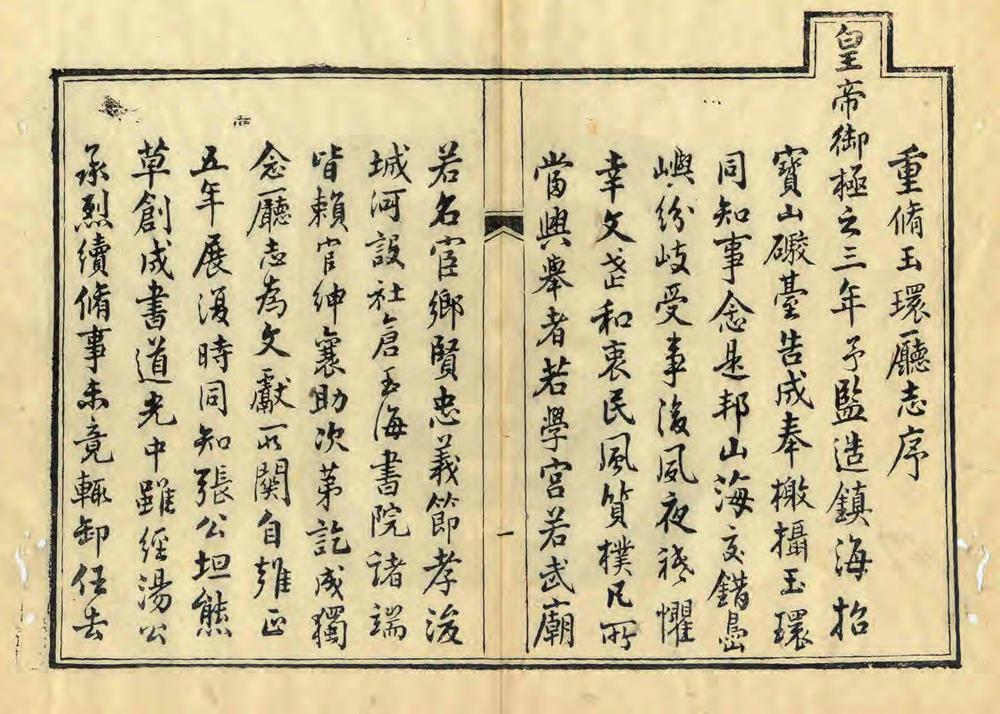 重脩玉環廳志序
皇帝御極之三年予監造鎮海招
寶山礮臺告成奉檄攝玉環
同知事念是邦山海交錯島
嶼紛岐受事後夙夜祗懼
幸文武和衷民風質樸凡所
當興舉者若學宮若武廟
一
若名宦鄉賢忠義節孝浚
城河設社倉玉海書院諸端
皆賴官紳襄助次第訖成獨
念廳志為文獻所關自雍正
五年展復時同知張公坦熊
草創成書道光中雖經湯公
承烈續脩事未竟輒卸任去